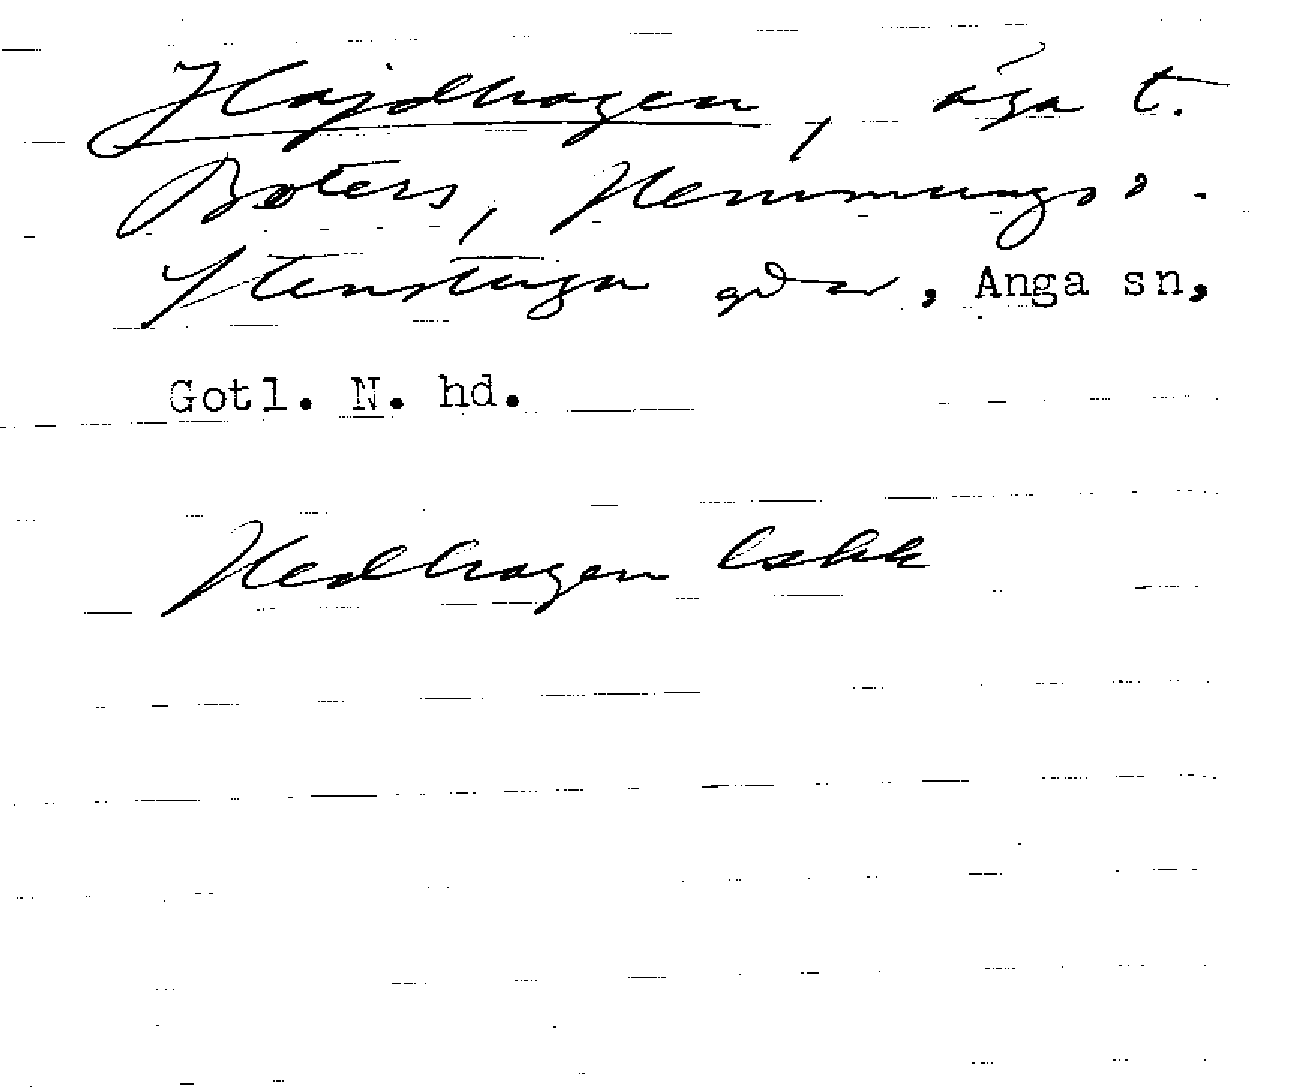 Hajdhagen, äga t.
Boters, Hemmungs o.
Stenstugu gdar, Anga sn,
Gotl. N. hd.
Hedhagen